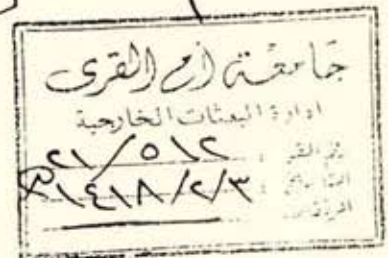 جامعة أم القرى
ادارة البعثات الخارجية
رقم القيد ٢١/٥١٢
التاريخ ١٤١٨/٢/٣هـ
المرفقات